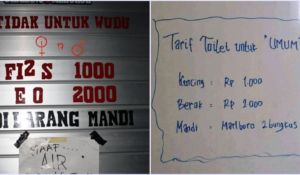 TIDAK UNTUK WUDU
FI2 S 1000
E O 2000
DILARANG MANDI
MAAF...
AIR
Tarif Toilet untuk "UMUM"
Kencing : Rp 1.000
Berak : Rp 2.000
Mandi : Marlboro 2 bungkus